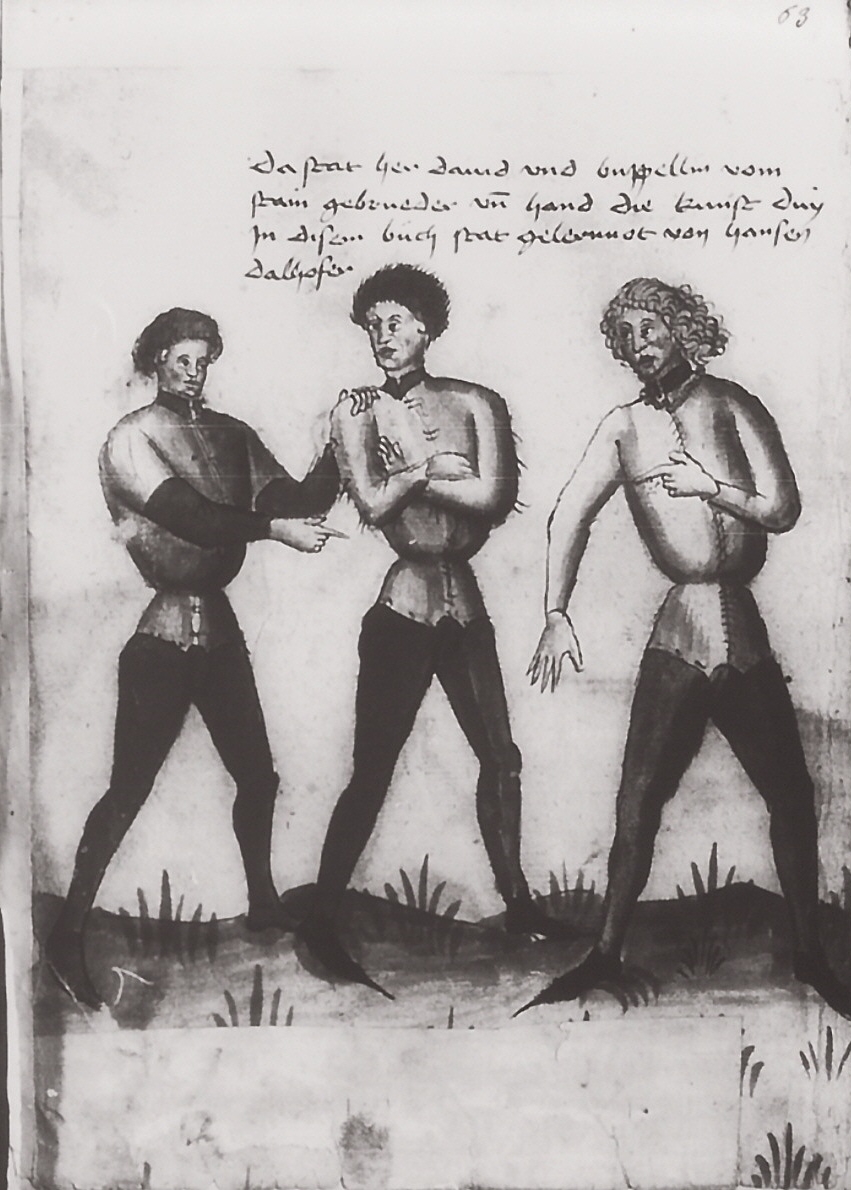 63
Da stat her david vnd buppellin vom
stain gebrueder vn̄ hand die kunst diỳ
In disem buch stat gelernnot von hansen
dalhofer